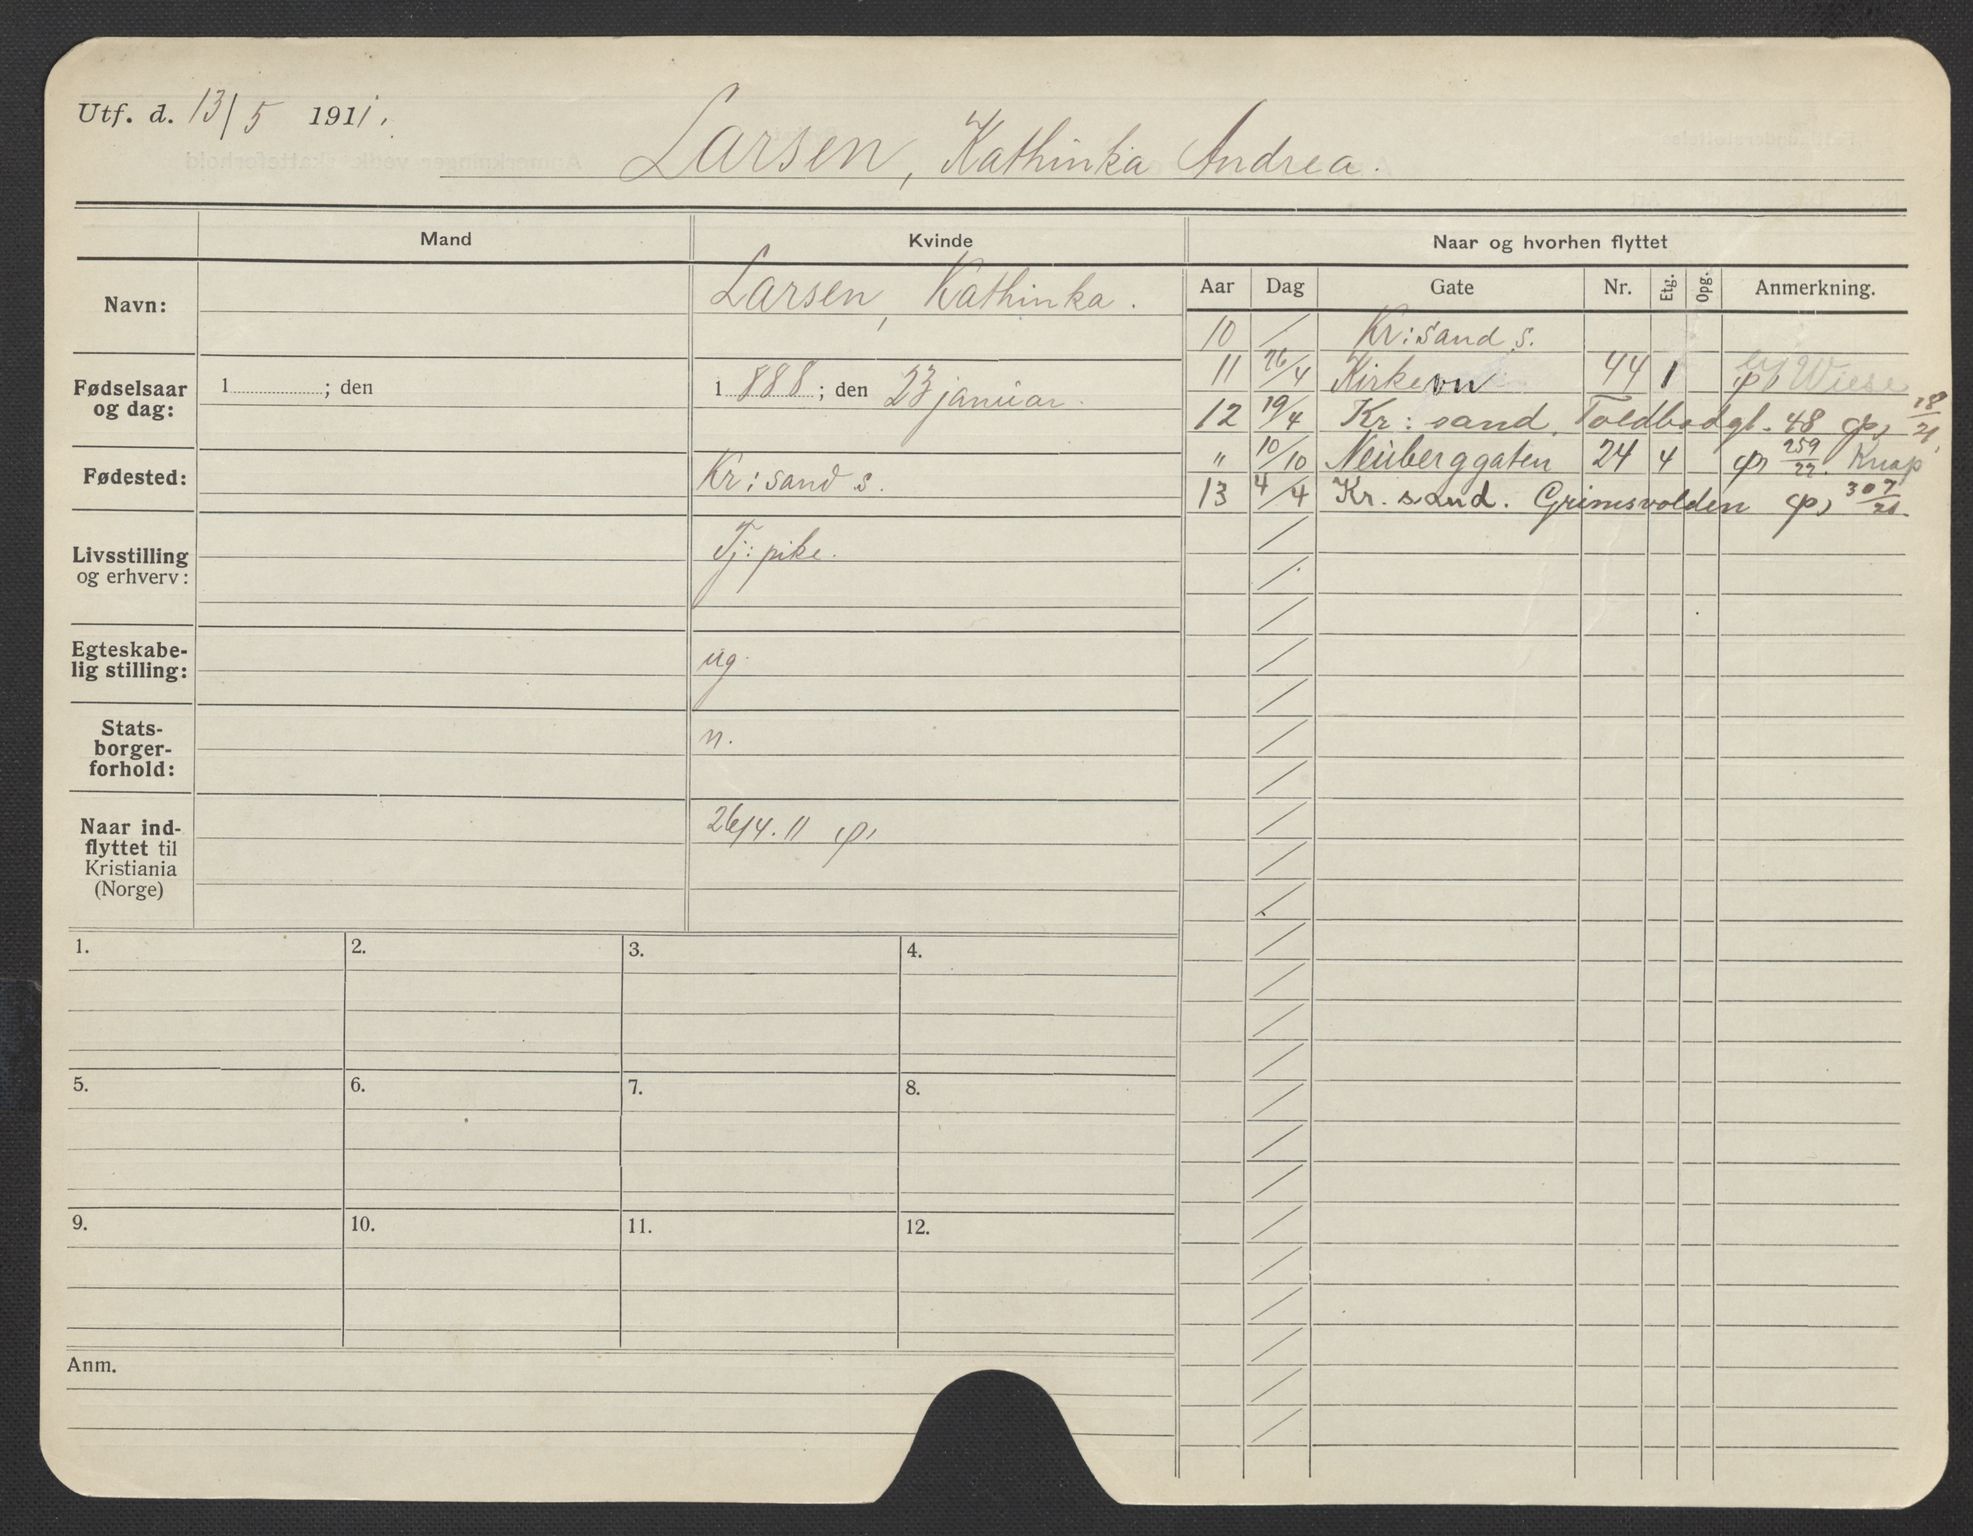 Utf. d. 13/5 1911.
Larsen, Kathinka Andrea.
Mand Kvinde Naar og hvorhen flyttet
Navn: Larsen, Kathinka.
Fødselsaar og dag: 1 ; den 1 888 ; den 23 januar.
Fødested: Kr: sand s.
Livsstilling og erhverv: Tj: pike.
Egteskabe-
lig stilling: ug.
Stats-
borger-
forhold: n.
Naar ind-
flyttet til
Kristiania
(Norge) 26/4. 11
Aar Dag Gate Nr. Etg. Opg. Anmerkning.
10 / Kr: sand s.
11 26/4 Kirkevn 44 1 Wiese
12 19/4 Kr: sand. Toldbodgt. 48 18/21
" 10/10 Neuberggaten 24 4 259/22. Knap
13 4/4 Kr. sand. Grimsvolden 307/21.
1. 2. 3. 4.
5. 6. 7. 8.
9. 10. 11. 12.
Anm.